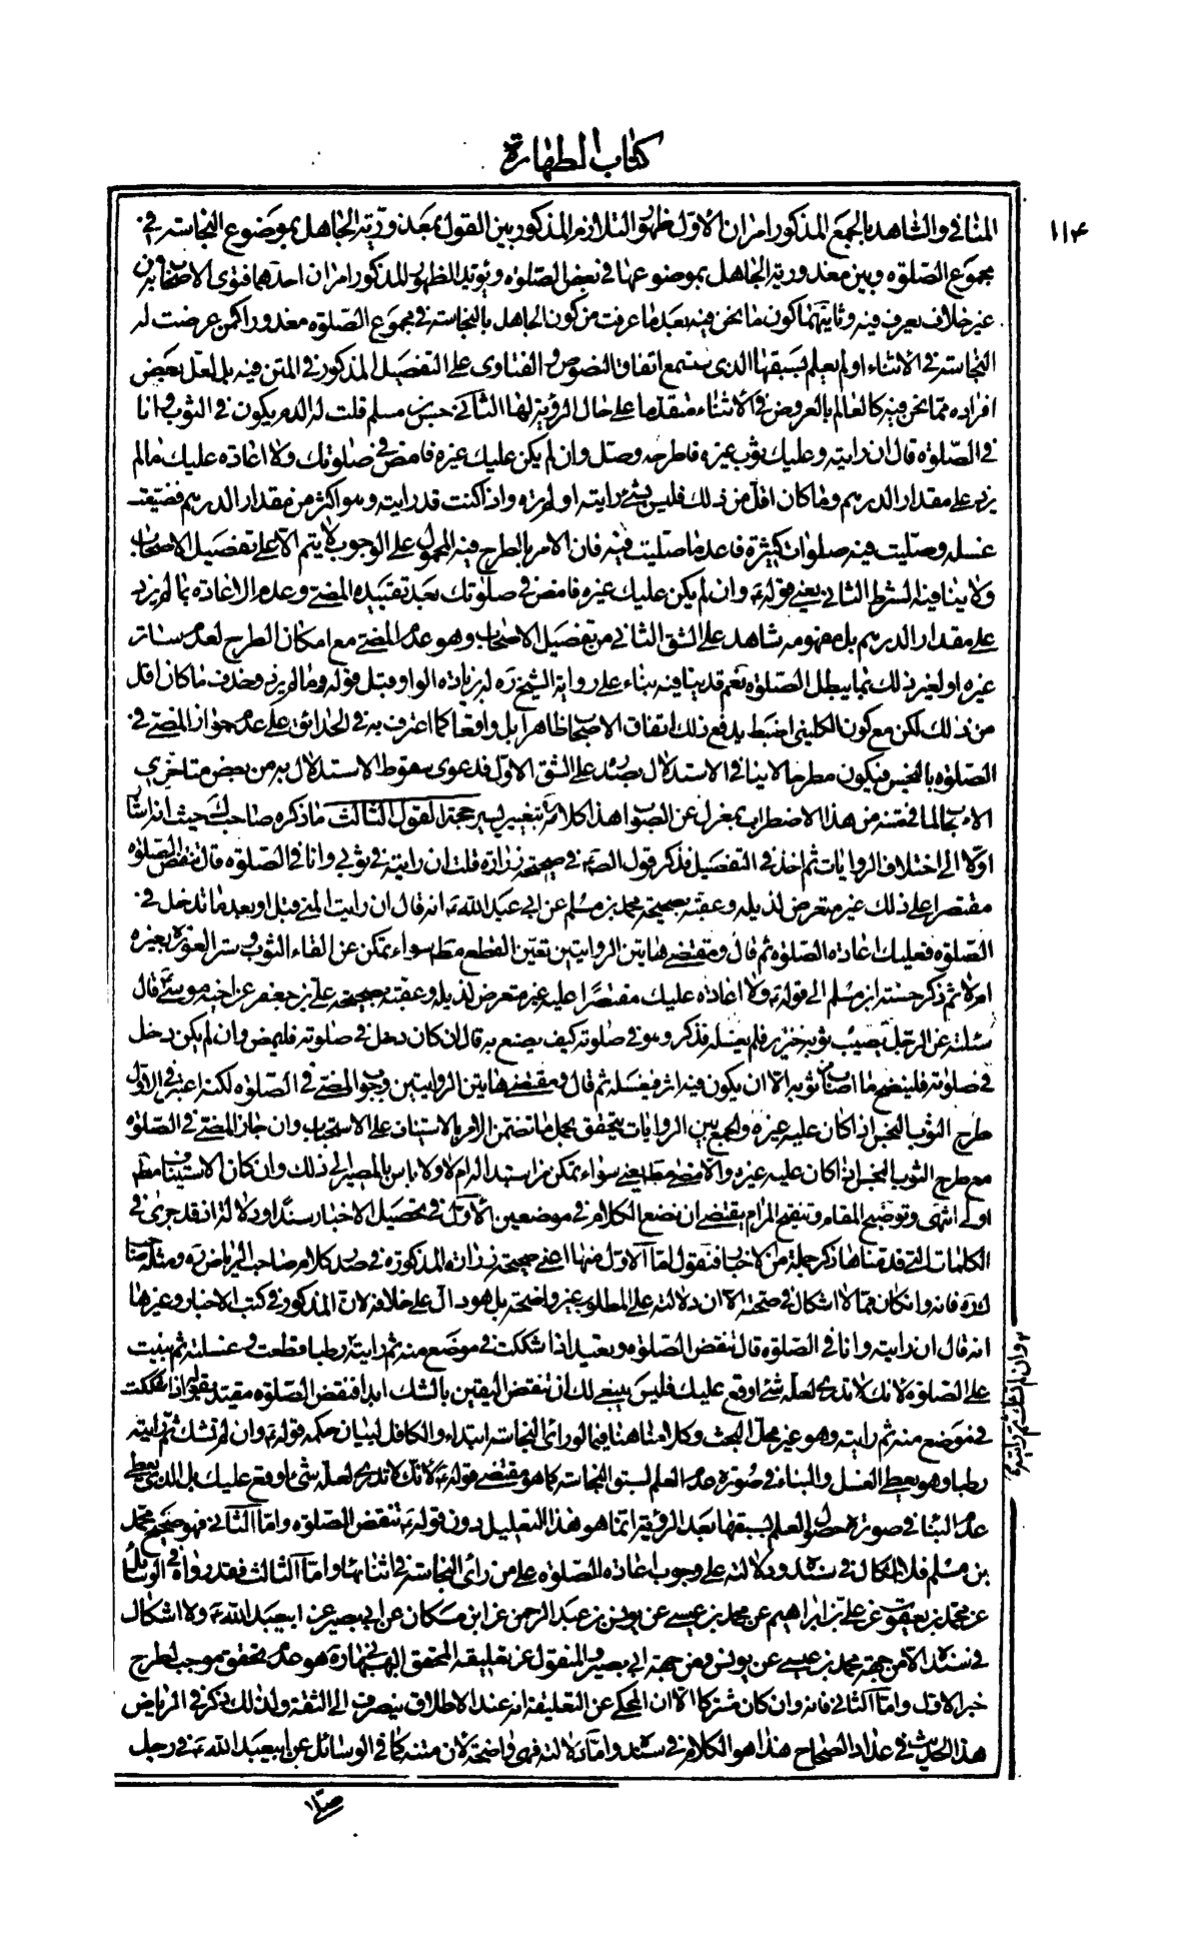 كتاب الطهارة
١١٤
المنافي والشاهد بالجمع المذكور امران الاول ظهور التلازم المذكور بين القول بمعذورية الجاهل بموضوع النجاسة في
مجموع الصلوة وبين معذورية الجاهل بموضوعها في بعض الصلوة ويؤيد الظهور المذكور امران احدهما فتوى الاصحاب من
غير خلاف يعرف فيه وثانيهما كون ما نحن فيه بعد ما عرفت من كون الجاهل بالنجاسة في مجموع الصلوة معذورا كمن عرضت له
النجاسة في الاثناء او لم يعلم بسبقها الذي ستسمع اتفاق النصوص والفتاوى على التفصيل المذكور في المتن فيه بل لعل بعض
افراده مما نحن فيه كالعالم بالعروض في الاثناء متقدما على حال الرؤية لها الثاني حسن بن مسلم قلت له الدم يكون في الثوب وانا
في الصلوة قال ان رايته وعليك ثوب غيره فاطرحه وصل وان لم يكن عليك غيره فامض في صلوتك ولا اعادة عليك ما لم
يزد على مقدار الدرهم وما كان اقل من ذلك فليس بشئ رايته او لم تره واذا كنت قد رايته وهو اكثر من مقدار الدرهم فضيعت
غسله وصليت فيه صلوات كثيرة فاعد ما صليت فيه فان الامر بالطرح فيه المحمول على الوجوب لا يتم الا على تفصيل الاصحاب
ولا ينافيه الشرط الثاني يعني قوله ع وان لم يكن عليك غيره فامض في صلوتك بعد تقييده المضي وعدم الاعادة بما لم يزد
على مقدار الدرهم بل مفهومه شاهد على الشق الثاني من تفصيل الاصحاب وهو عدم المضي مع امكان الطرح لعدم ساتر
غيره او لغير ذلك مما يبطل الصلوة نعم قد ينافيه بناء على رواية الشيخ ره له بزيادة الواو قبل قوله وما لم يزد وحذف ما كان اقل
من ذلك لكن مع كون الكليني اضبط يدفع ذلك اتفاق الاصحاب ظاهرا بل واقعا كما اعترف به في الحدائق على عدم جواز المضي في
الصلوة بالنجس فيكون مطرحا لا ينافي الاستدلال بصدره على الشق الاول فدعوى سقوط الاستدلال به من بعض متاخري
الاصحاب لما فيه من هذا الاضطراب بمعزل عن الصواب هذا كلامه بتغيير يسير حجة القول الثالث ما ذكره صاحب حيث انه اشار
اولا الى اختلاف الروايات ثم اخذ في التفصيل فذكر قول الص ع في صحيحة زرارة قلت ان رايته في ثوبي وانا في الصلوة قال تنقض الصلوة
مقتصرا على ذلك غير متعرض لذيله وعقبه بصحيحة محمد بن مسلم عن ابي عبد الله ع انه قال ان رايت المني قبل او بعد ما تدخل في
الصلوة فعليك اعادة الصلوة ثم قال ومقتضى هاتين الروايتين تعين القطع مط سواء تمكن من القاء الثوب وستر العورة بغيره
ام لا ثم ذكر حسنة ابن مسلم الى قوله ع ولا اعادة عليك مقتصرا عليه غير متعرض لذيله وعقبه بصحيحة علي بن جعفر عن اخيه موسى ع قال
سئلته عن الرجل يصيب ثوبه خنزير فلم يغسله فذكر وهو في صلوته كيف يصنع به قال ان كان دخل في صلوته فليمض وان لم يكن دخل
في صلوته فلينضح ما اصاب من ثوبه الا ان يكون فيه اثر فيغسله ثم قال ومقتضى هاتين الروايتين وجوب المضي في الصلوة لكنه اعتبر في الاولى
طرح الثوب النجس اذا كان عليه غيره والجمع بين الروايات يتحقق بحمل ما تضمن الامر بالاستيناف على الاستحباب وان جاز المضي في الصلوة
مع طرح الثوب النجس اذا كان عليه غيره والا مضى مط يعني سواء تمكن من استبداله ام لا ولا باس بالمصير الى ذلك وان كان الاستيناف مط
اولى انتهى وتوضيح المقام وتنقيح المرام يقتضي ان نضع الكلام في موضعين الاول في تحصيل الاخبار سندا ودلالة انه قد جرى في
الكلمات التي قدمناها ذكر جملة من الاخبار فنقول اما الاول منها اعني صحيحة زرارة المذكورة في صدر كلام صاحب الرياض ره ومثله صاحب
ك ره فانه وان كان مما لا اشكال في صحته الا ان دلالته على المطلوب غير واضحة بل هو دال على خلافه لان المذكور في كتب الاخبار وغيرها
انه قال ان رايته وانا في الصلوة قال تنقض الصلوة وتعيد اذا شككت في موضع منه ثم رايته رطبا قطعت وغسلته ثم بنيت
على الصلوة لانك لا تدري لعله شئ اوقع عليك فليس ينبغي لك ان تنقض اليقين بالشك ابدا فنقض الصلوة مقيد بقوله اذا شككت
في موضع منه ثم رايته وهو غير محل البحث وكلامنا هنا فيما لو رأى النجاسة ابتداء والكافل لبيان حكمه قوله ع وان لم تشك ثم رايته
رطبا وهو يعطي الغسل والبناء في صورة عدم العلم بسبق النجاسة كما هو مقتضى قوله ع لانك لا تدري لعله شئ اوقع عليك بل الذي يعطي
عدم البناء في صورة حصول العلم بسبقها بعد الرؤية انما هو هذا التعليل دون قوله ع تنقض الصلوة واما الثاني فهو صحيح محمد
بن مسلم فلا اشكال في سنده ودلالته على وجوب اعادة الصلوة على من رأى النجاسة في اثنائها واما الثالث فقد رواه في الوسائل
عن محمد بن يعقوب عن علي بن ابراهيم عن محمد بن عيسى عن يونس بن عبد الرحمن عن ابن مسكان عن ابي بصير عن ابيعبد الله ع ولا اشكال
في سنده الا من جهة محمد بن عيسى عن يونس ومن جهة ابي بصير والمنقول عن تعليقه المحقق البهبهاني ره هو عدم تحقق موجب لطرح
خبر الاول واما الثاني فانه وان كان مشتركا الا ان المحكي عن التعليقة انه عند الاطلاق ينصرف الى الثقة ولذلك ذكر في الرياض
هذا الحديث في عداد الصحاح هذا هو الكلام في سنده واما دلالته فهي واضحة لان متنه كما في الوسائل عن ابيعبد الله ع في رجل
وان لم تشك ثم رايته
صلى